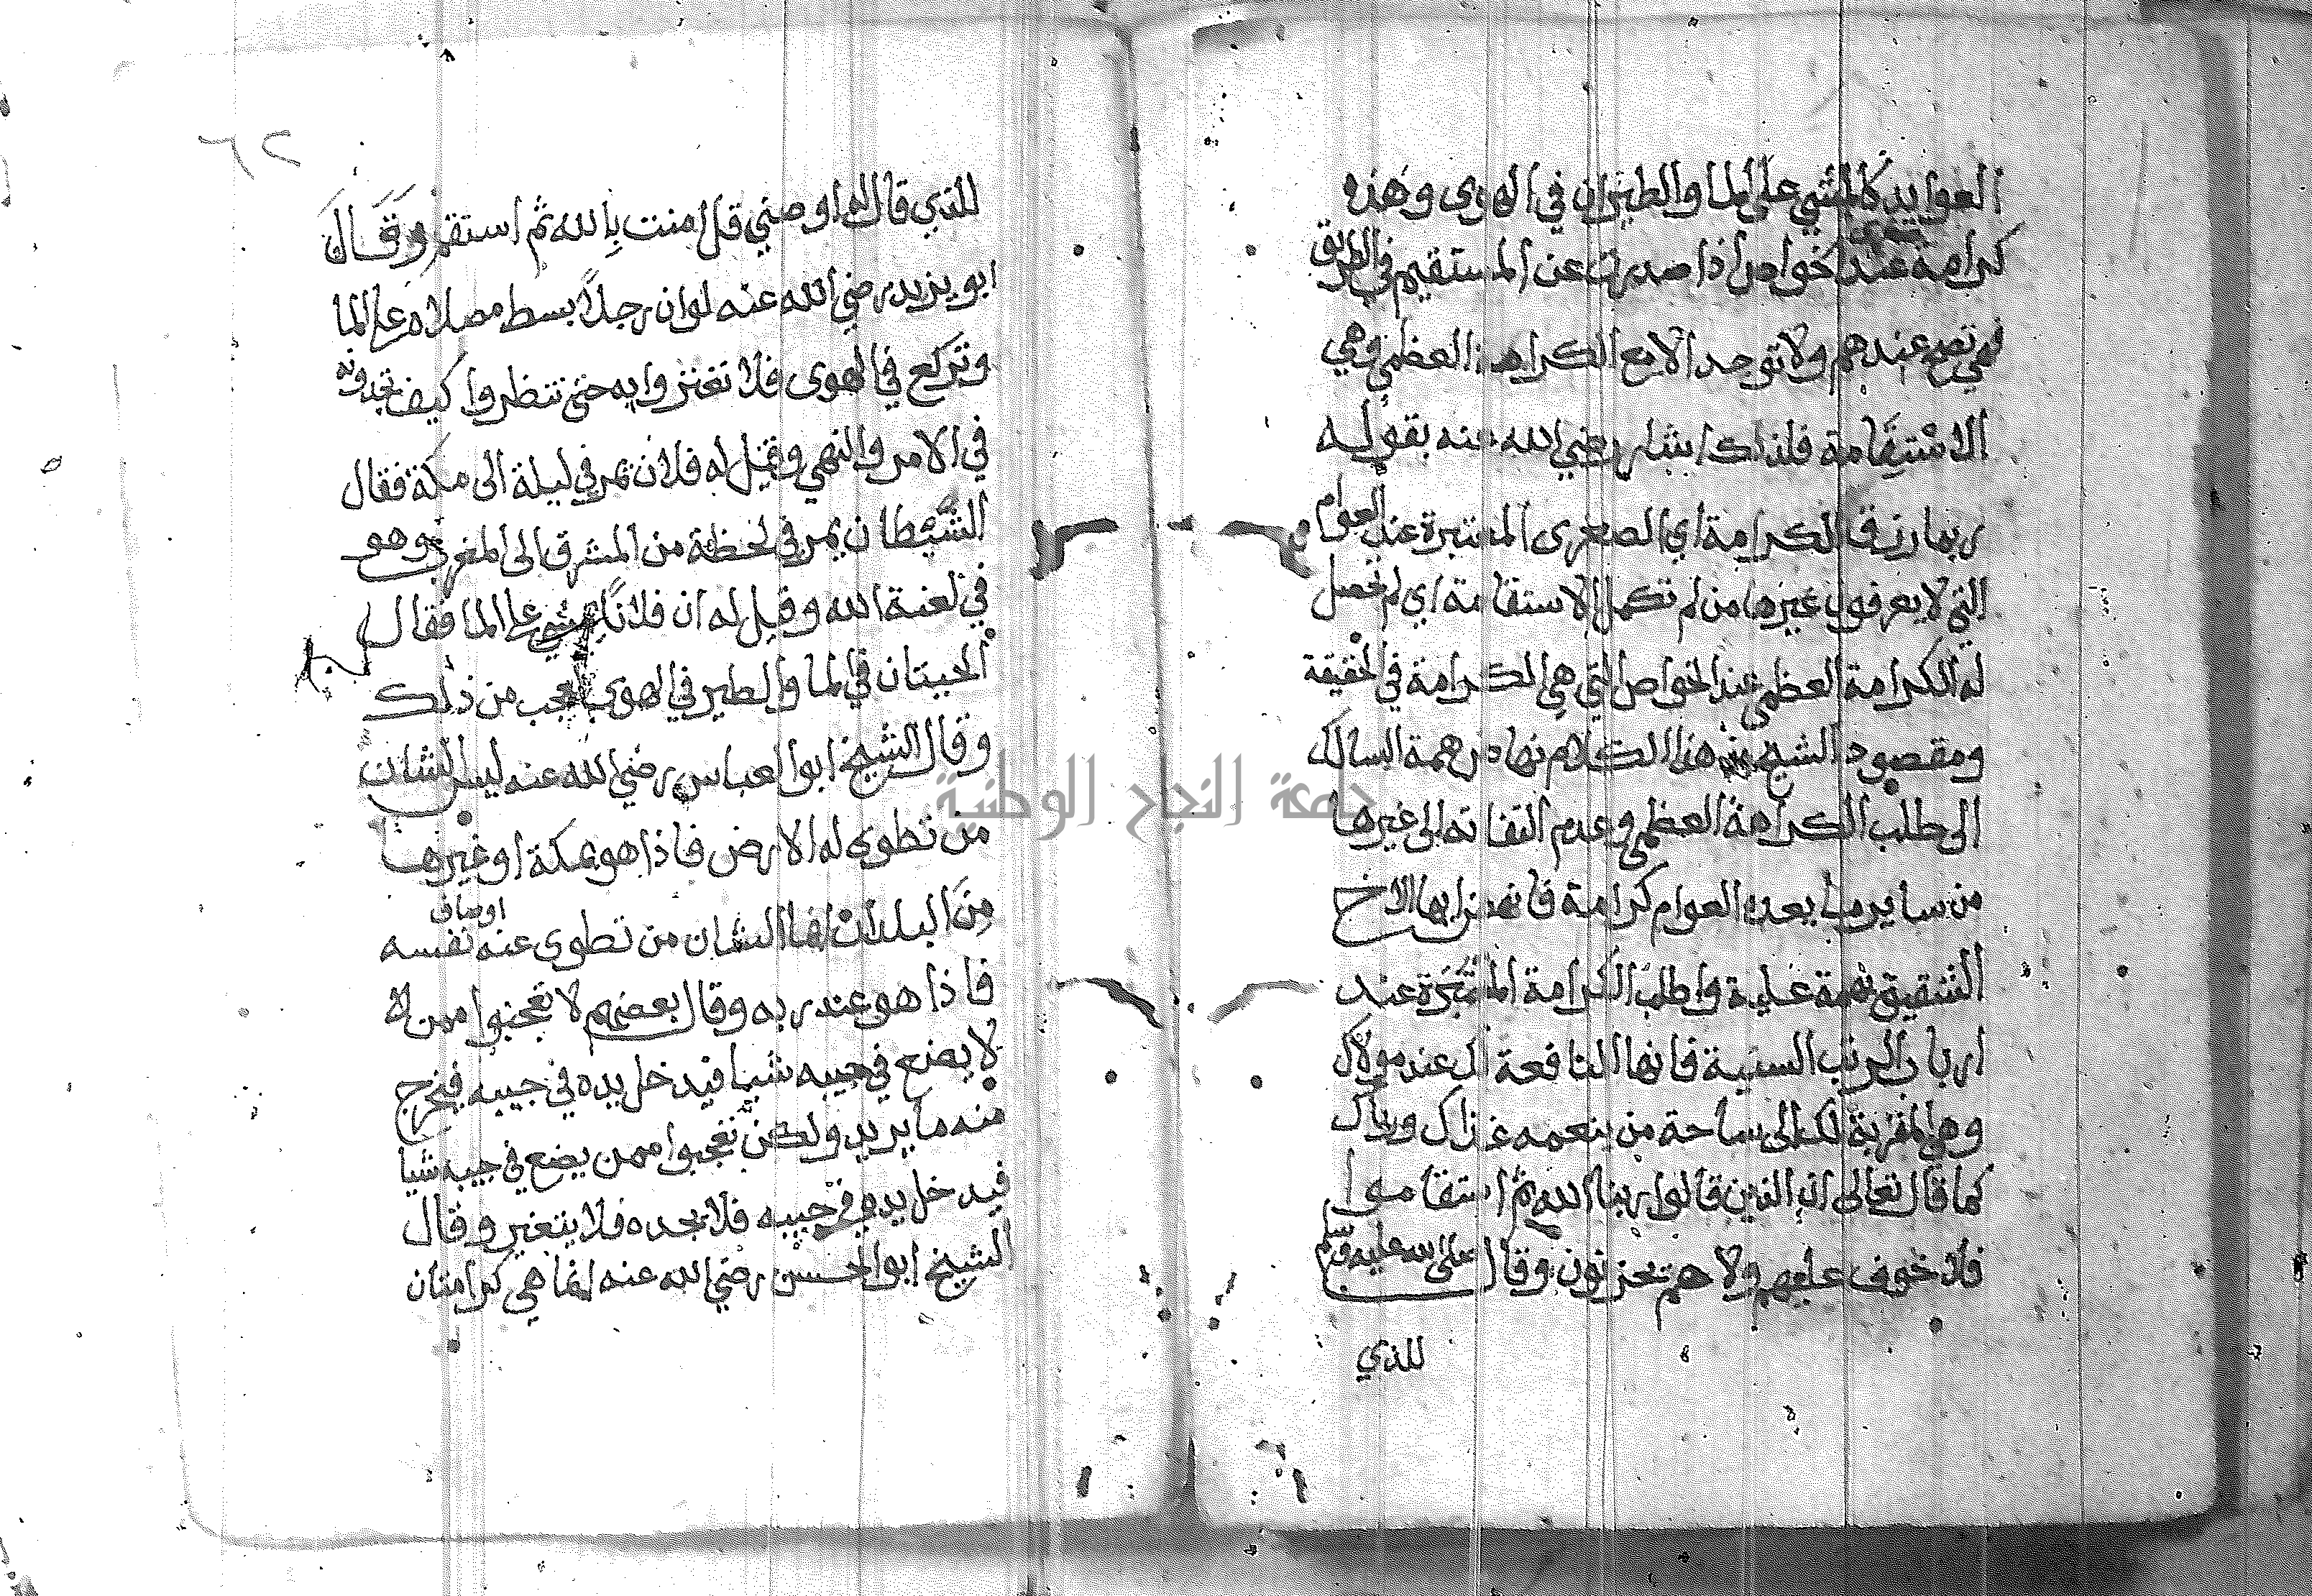 العوايد كالمشي على الما والطيران في الهوى وهذه
كرامة عند الخواص اذا صدرت عن المستقيم في الطريق
فهي تصح عندهم ولا توجد الا مع الكرامة العظمى وهي
الاستقامة فلذلك اشار رضي الله عنه بقوله
ربما رزق الكرامة اي الصغرى المعتبرة عند العوام
التي لا يعرفون غيرها من لم تكمل الاستقامة اي لم تحصل
له الكرامة العظمى عند الخواص التي هي الكرامة في الحقيقة
ومقصود الشيخ من هذا الكلام نهاض همة السالك
الى طلب الكرامة العظمى وعدم التفاته الى غيرها
من ساير ما يعده العوام كرامة فانهض ايها الاخ
الشقيق بهمة علية واطلب الكرامة المعتبرة عند
ارباب الرتب السنية فانها النافعة لك عند مولاك
وهي المقربة لك الى ساحة من بنعمه غذاك ورباك
كما قال تعالى ان الذين قالوا ربنا الله ثم استقاموا
فلا خوف عليهم ولا هم يحزنون وقال صلى الله عليه وسلم
للذي
٦٢
للذي قال له اوصني قل امنت بالله ثم استقم وقال
ابو يزيد رضي الله عنه لو ان رجلا بسط مصلاه على الما
وتركع في الهوى فلا تغتروا به حتى تنظروا كيف تجدونه
في الامر والنهي وقيل له فلان يمر في ليلة الى مكة فقال
الشيطان يمر في لحظة من المشرق الى المغرب وهو
في لعنة الله وقيل له ان فلانا يمشي على الما فقال
الحيتان في الما والطير في الهوى اعجب من ذلك
وقال الشيخ ابو العباس رضي الله عنه ليس الشان
من تطوى له الارض فاذا هو بمكة او غيرها
من البلدان انما الشان من تطوى عنه اوصاف نفسه
فاذا هو عند ربه وقال بعضهم لا تعجبوا ممن
لا يضع في جيبه شيا فيدخل يده في جيبه فيخرج
منه ما يريد ولكن تعجبوا ممن يضع في جيبه شيا
فيدخل يده في جيبه فلا يجده فلا يتغير وقال
الشيخ ابو الحسن رضي الله عنه انما هي كرامتان
جامعة النجاح الوطنية